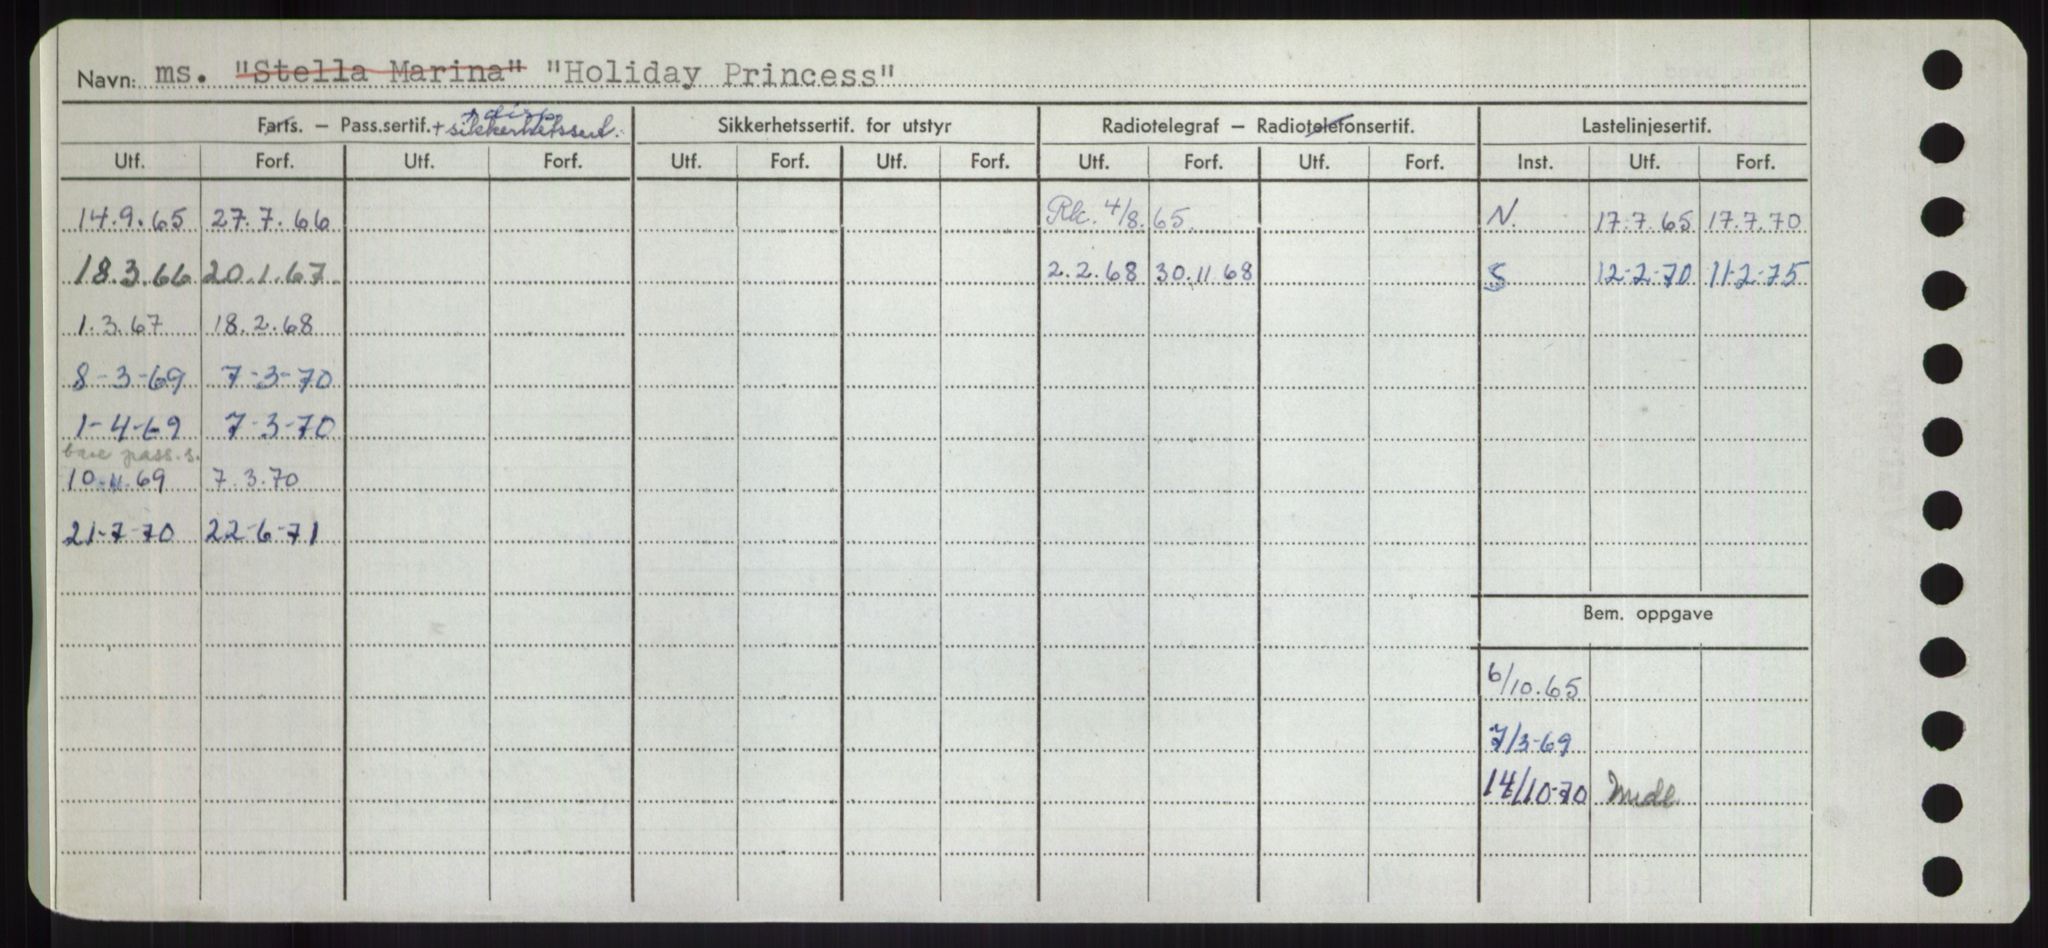 Navn: ms. "Stella Marina" "Holiday Princess"
+ disp
Farts. – Pass.sertif. + sikkerhetssert. Sikkerhetssertif. for utstyr Radiotelegraf – Radiotelefonsertif. Lastelinjesertif.
Utf. Forf. Utf. Forf. Utf. Forf. Utf. Forf. Utf. Forf. Utf. Forf. Inst. Utf. Forf.
14.9.65 27.7.66 Rk. 4/8.65. N. 17.7.65 17.7.70
18.3.66 20.1.67 2.2.68 30.11.68 S 12-2-70 11-2-75
1.3.67 18.2.68
8-3-69 7-3-70
1-4-69 7-3-70
bare pass.s.
10.11.69 7.3.70
21-7-70 22-6-71
Bem. oppgave
6/10.65
7/3-69
14/10-70 Midl.